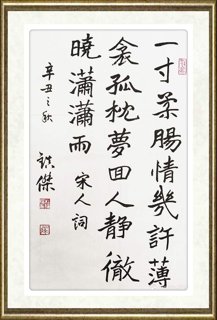 一寸柔腸情幾許薄
衾孤枕夢回人静徹
曉瀟瀟雨 宋人詞
辛丑之秋
傑